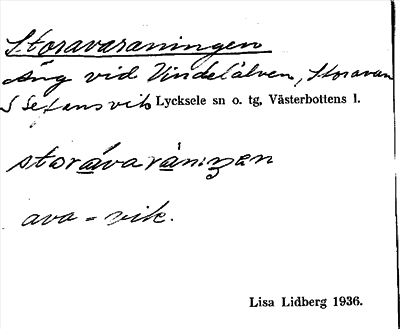 Storavaraningen
Äng vid Vindelälven, Storavan
S Lycksele sn o. tg, Västerbottens l.
storávarániŋen
ava = vik.
Lisa Lidberg 1936.